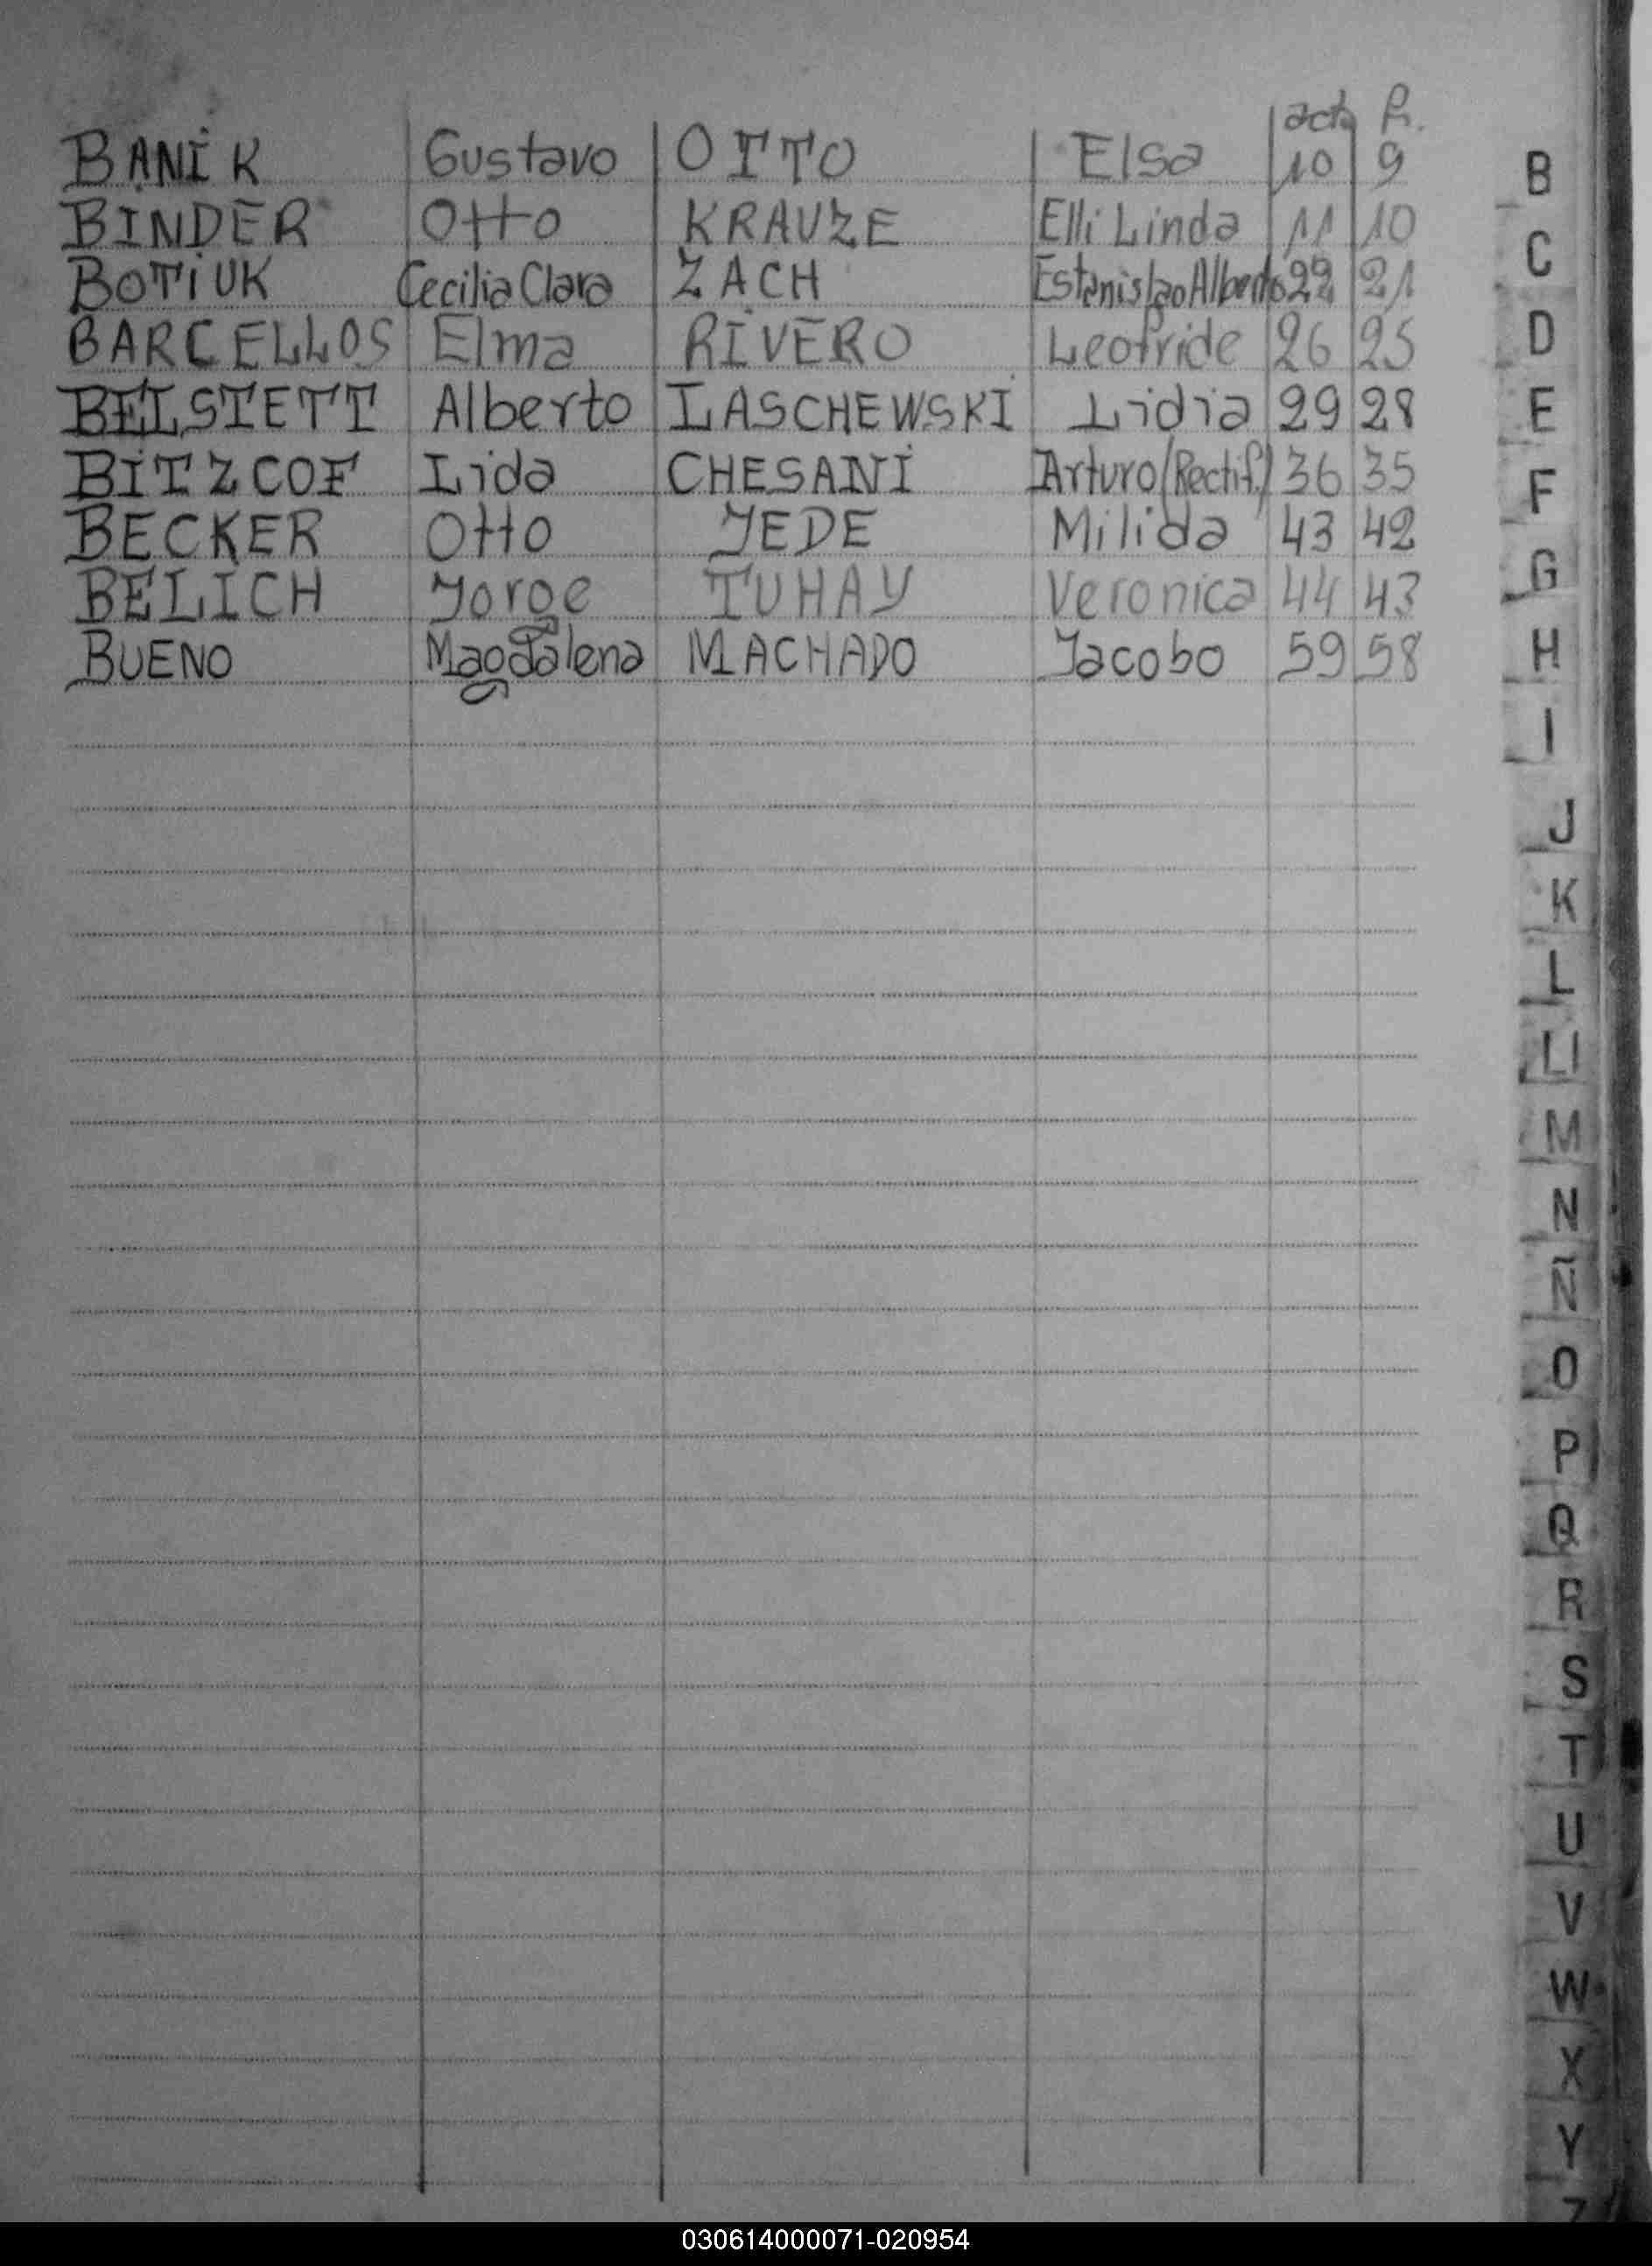 acta P.
BANIK Gustavo OTTO Elsa 10 9
BINDER Otto KRAUZE Elli Linda 11 10
BOTIUK Cecilia Clara ZACH Estanislao Alberto 22 21
BARCELLOS Elma RIVERO Leofride 26 25
BELSTETT Alberto LASCHEWSKI Lidia 29 28
BITZCOF Lida CHESANI Arturo (Rectif.) 36 35
BECKER Otto JEDE Milida 43 42
BELICH Jorge TUHAY Veronica 44 43
BUENO Magdalena MACHADO Jacobo 59 58
B
C
D
E
F
G
H
I
J
K
L
Ll
M
N
Ñ
O
P
Q
R
S
T
U
V
W
X
Y
Z
030614000071-020954